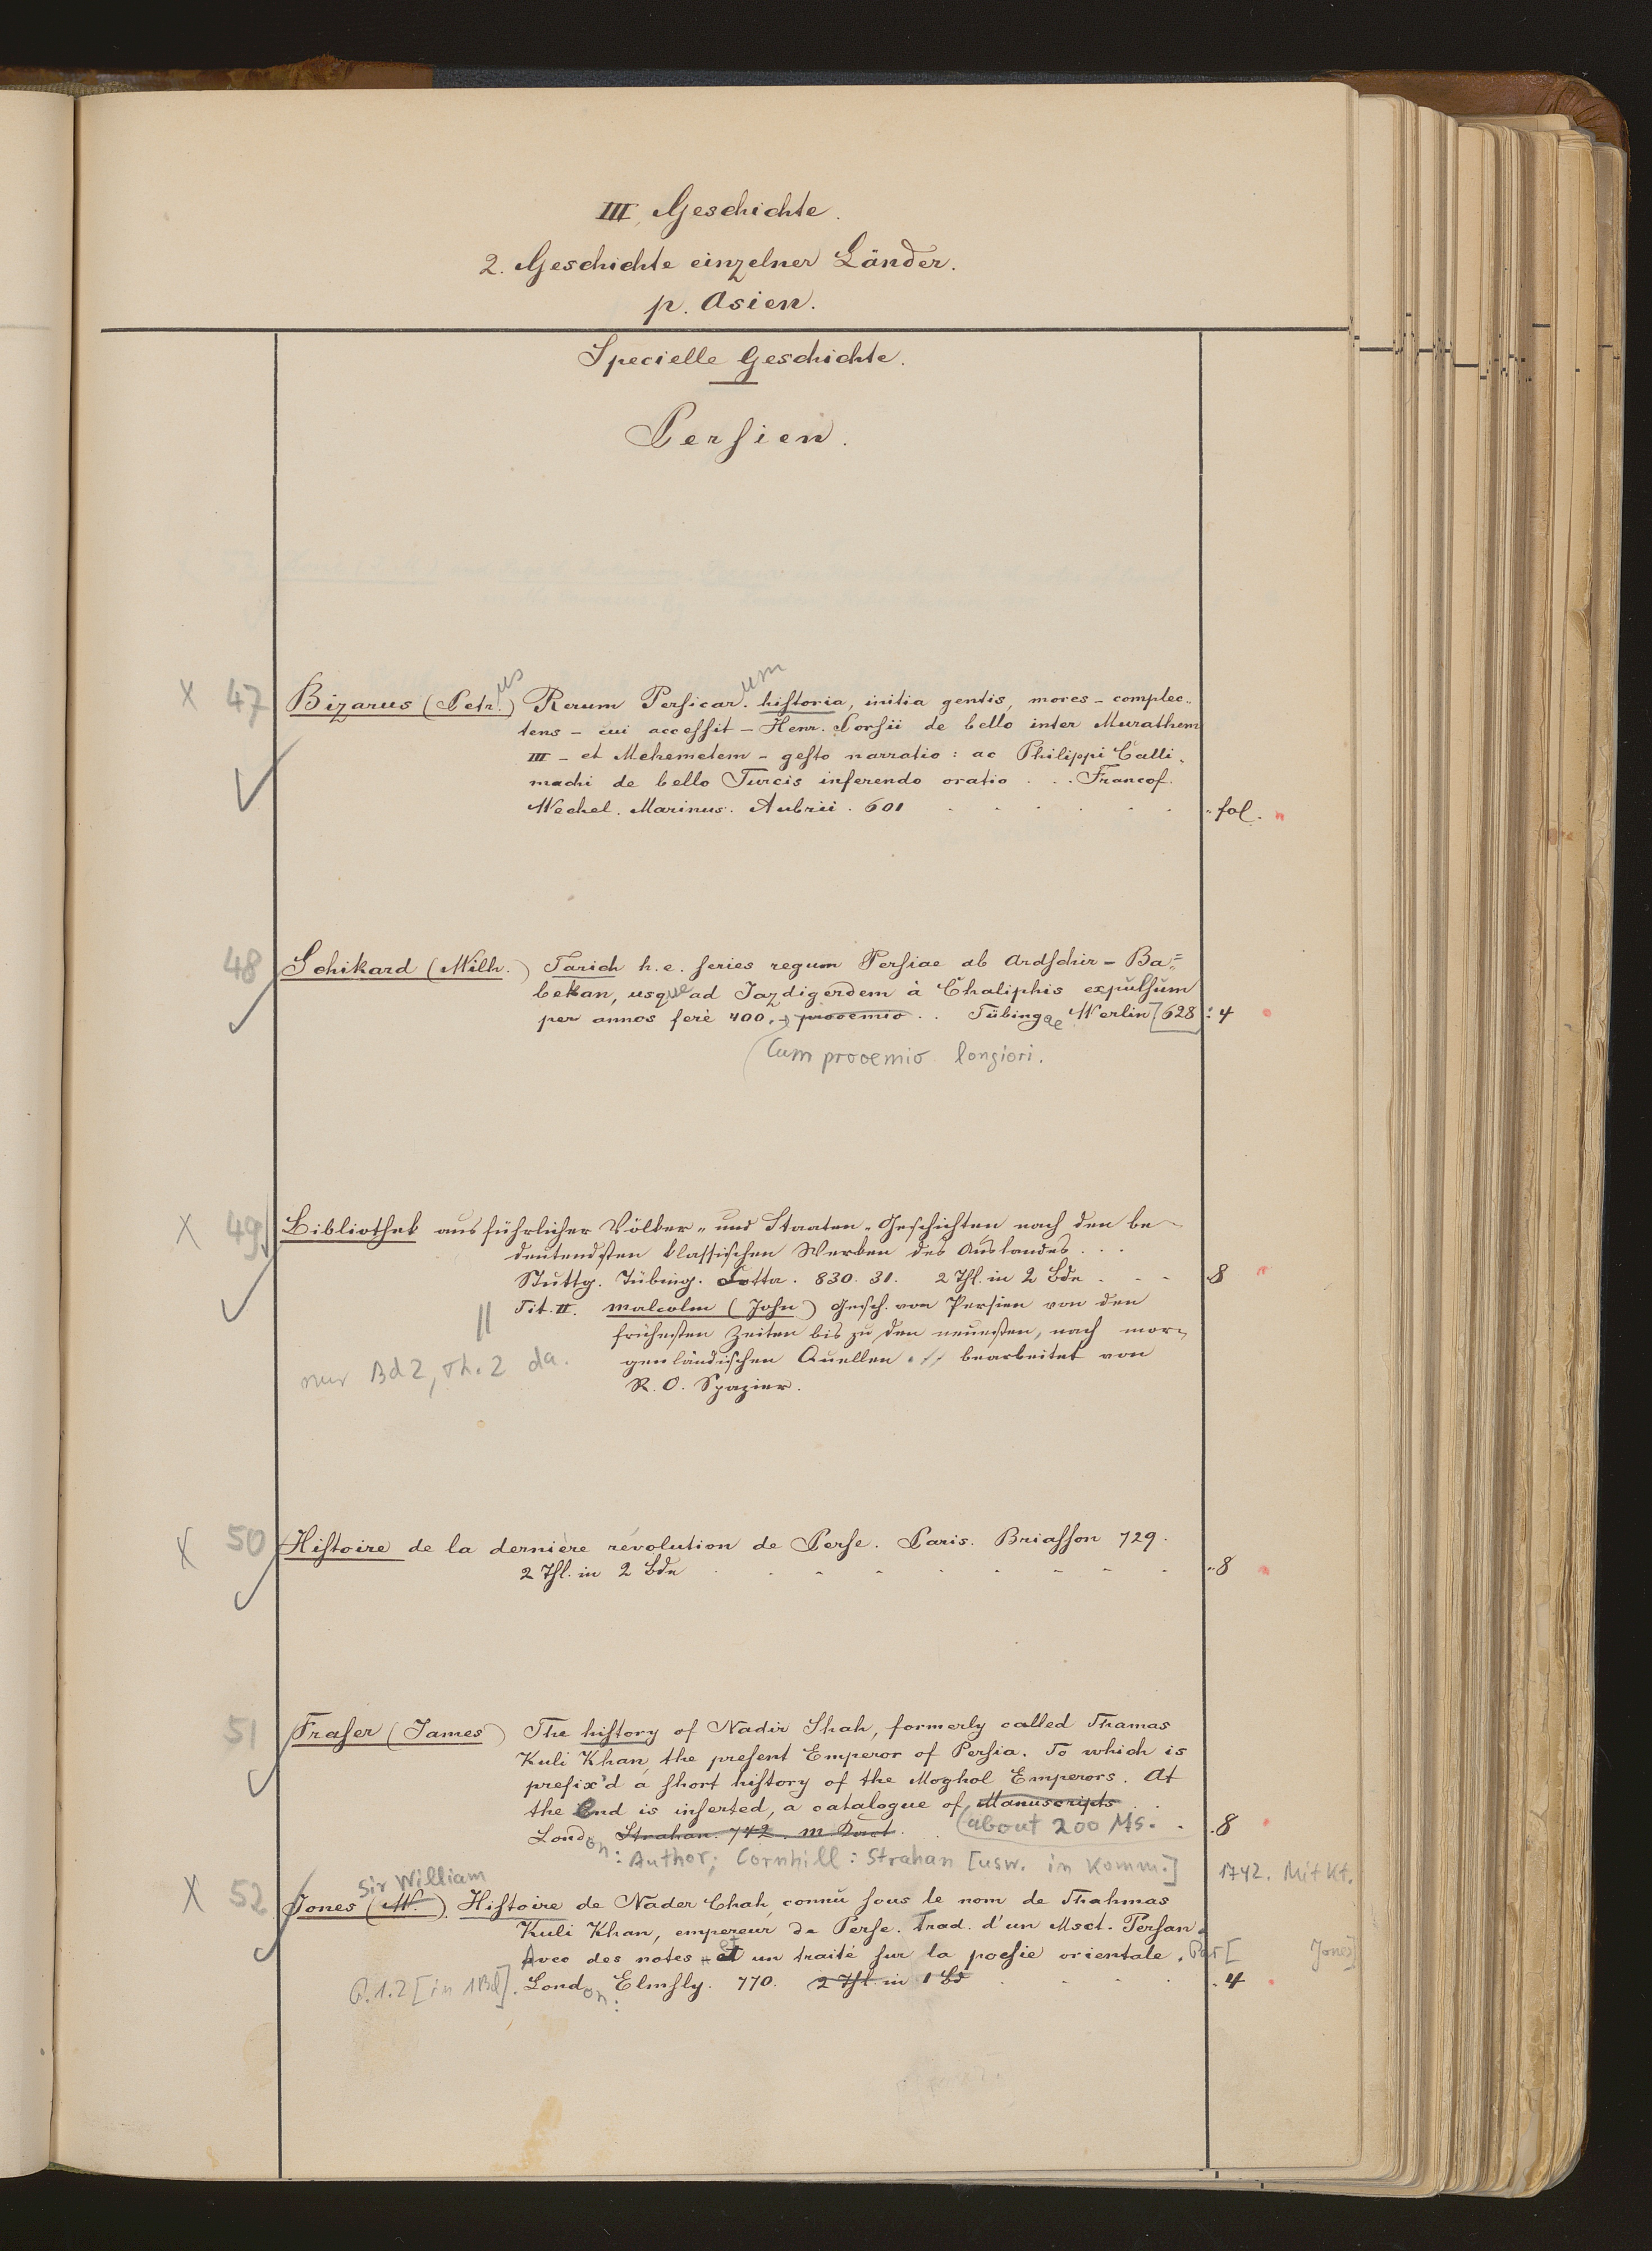 III. Geschichte.
2. Geschichte einzelner Länder.
p. Asien.
Specielle Geschichte.
Persien.
X 47 Bizarus (Petr.us) Rerum Persicar.um historia, initia gentis, mores - complec-
tens - cui accessit - Henr. Porsii de bello inter Murathem
III - et Mehemetem - gesto narratio: ac Philippi Calli-
machi de bello Turcis inferendo oratio . . . Francof.
Wechel. Marinus. Aubrii. 601 fol.
48 Schikard (Wilh.) Tarich h. e. series regum Persiae ab Ardschir-Ba=
bekan, usque ad Jazdigerdem à Chaliphis expulsum
per annos ferè 400. prooemio . . Tübingae Werlin [628 : 4
Cum prooemio longiori.
X 49 Bibliothek ausführlicher Völker- und Staaten-Geschichten nach den be-
deutendsten klassischen Werken des Auslandes . . .
Stuttg. Tübing. Cotta. 830. 31. 2 Thl. in 2 Bde 8
Tit. II. Malcolm (John) Gesch. von Persien von den
frühesten Zeiten bis zu den neuesten, nach mor-
genländischen Quellen bearbeitet von
nur Bd 2, Th. 2 da.
R. O. Spazier.
X 50 Histoire de la derniere révolution de Perse. Paris. Briasson 729.
2 Thl. in 2 Bde 8
51 Fraser (James) The history of Nadir Shah, formerly called Thamas
Kuli Khan, the present Emperor of Persia. To which is
prefix'd a short history of the Moghol Emperors. At
the End is inserted, a catalogue of Manuscripts
about 200 Ms.
London: Strahan. 742. m. 8
Author; Cornhill: Strahan [usw. in Komm.] 1742. Mit Kt.
Sir William
X 52 Jones (W.) Histoire de Nader Chah, connu sous le nom de Thahmas
Kuli Khan, empereur de Perse. Trad. d'un Msct. Persan.
Avec des notes et un traité sur la poésie orientale. Par [ Jones]
P. 1.2 [in 1 Bd]. London: Elmsly. 770. 2 Thl. in 1 Bd 4